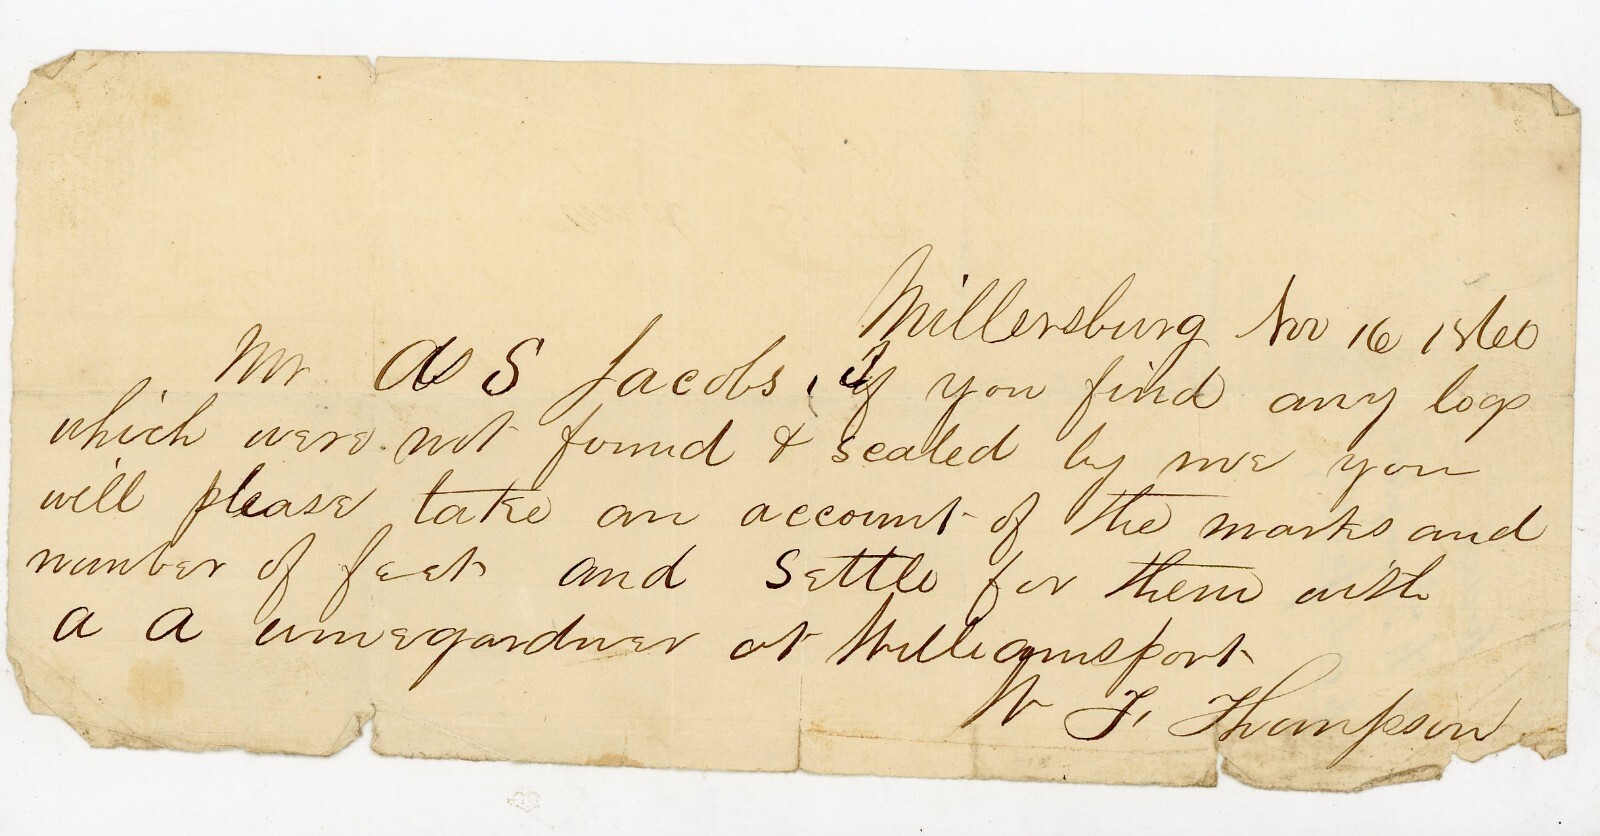 Millersburg Nov 16 1860
Mr As S Jacobs, If you find any logs
which were not found & scaled by me you
will please take an account of the marks and
number of feet and Settle for them with
A A Winegardner at Williamsport
W F, Thompson